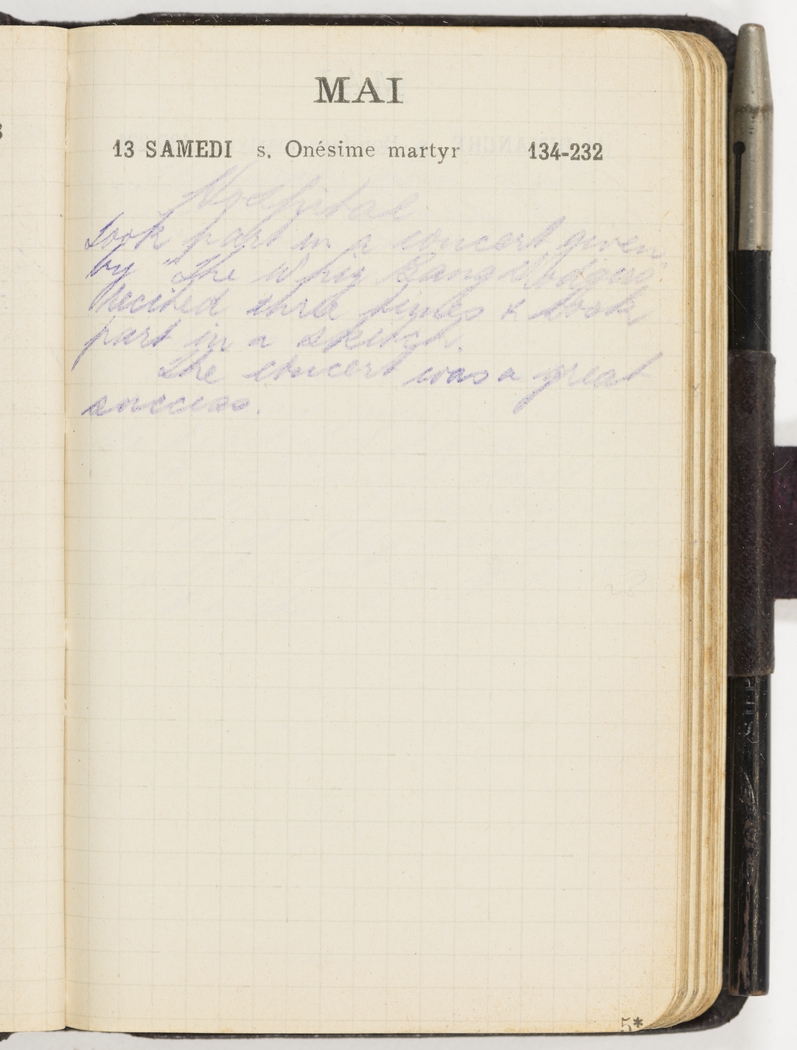 MAI
13 SAMEDI s. Onésime martyr 134-232
Hospital
Took part in a concert given
by "The Whiz Bang Dodgers".
Recited three times & took
part in a sketch.
The concert was a great
success.
5*